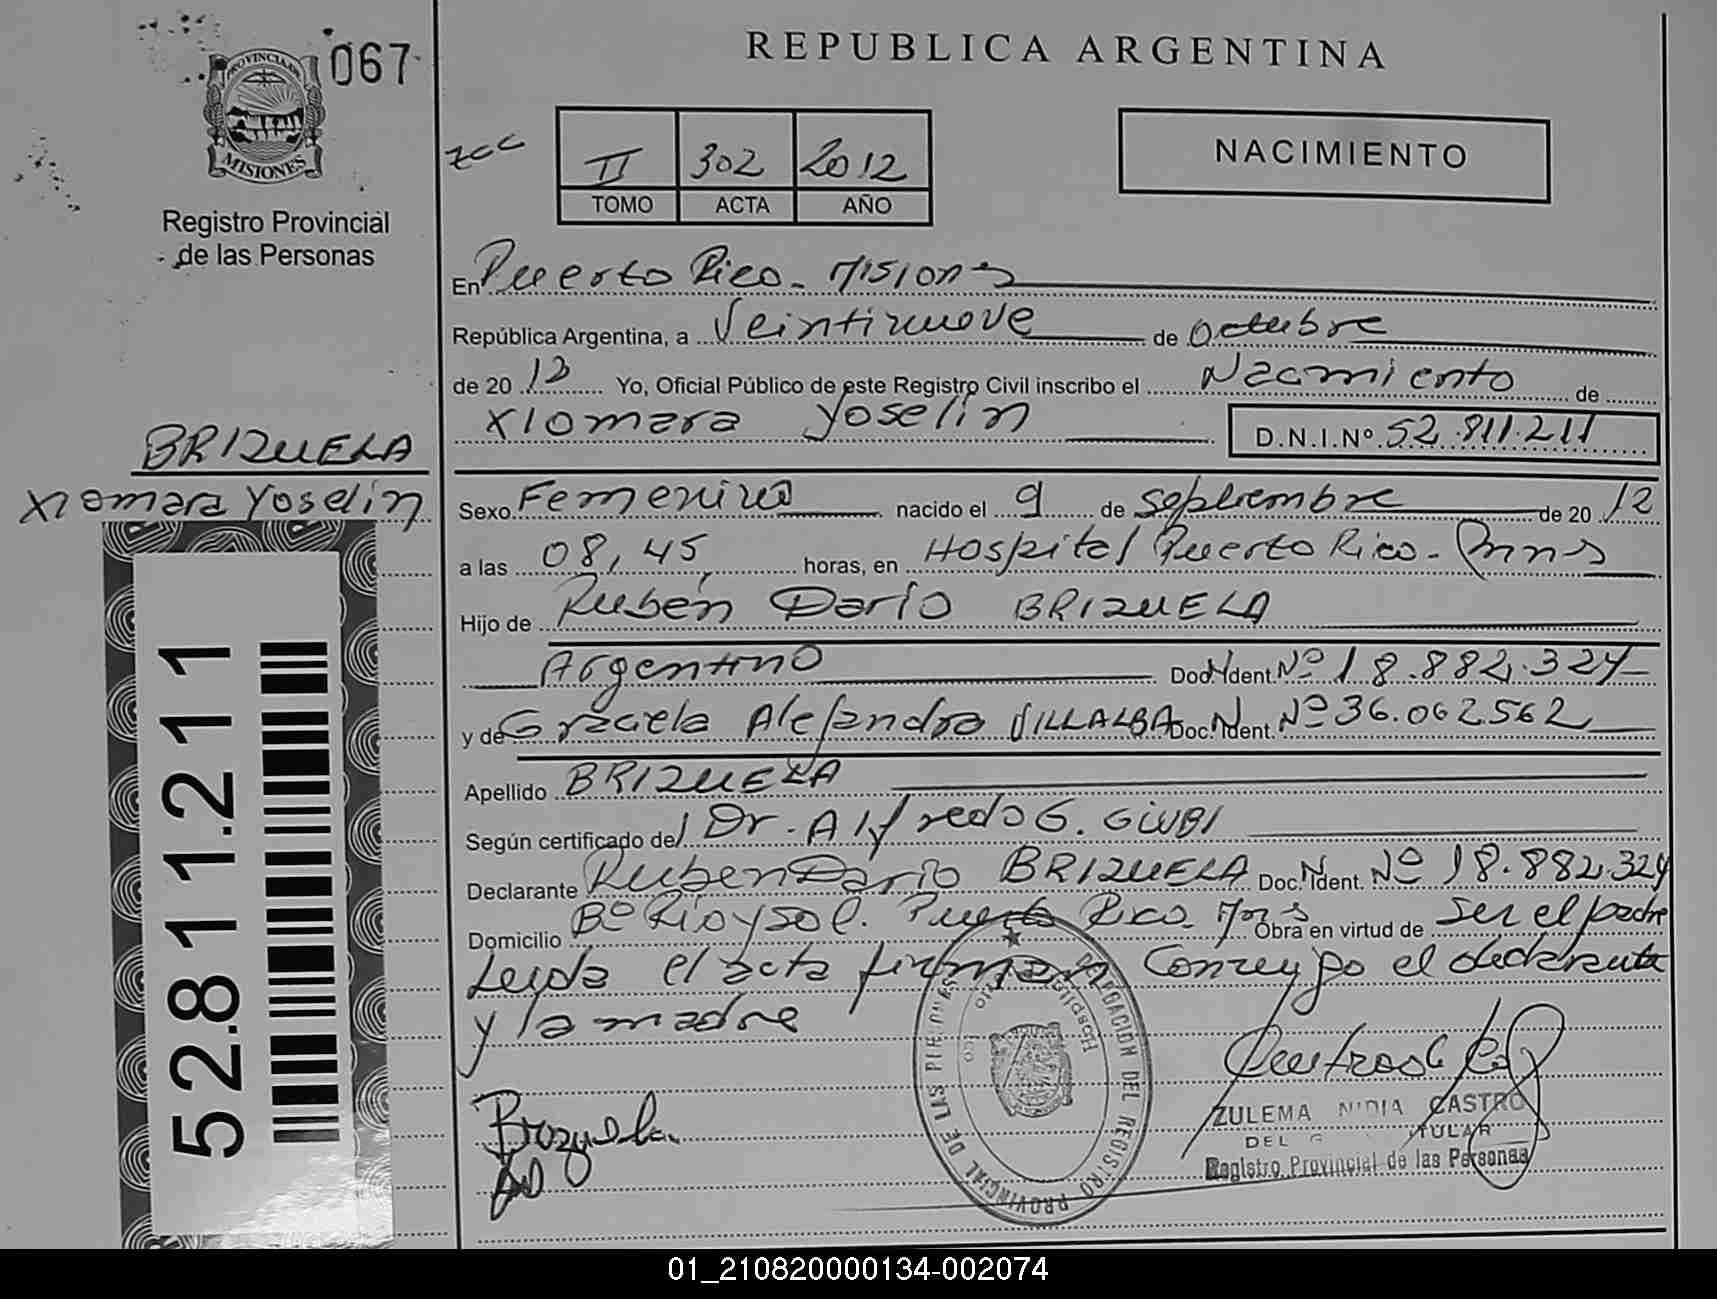 067
PROVINCIA DE
MISIONES
Registro Provincial
de las Personas
BRIZUELA
Xiomara Yoselin
52.811.211
REPUBLICA ARGENTINA
II 302 2012
TOMO ACTA AÑO
NACIMIENTO
En Puerto Rico - Misiones
República Argentina, a Veintinueve de Octubre
de 20 12 Yo, Oficial Público de este Registro Civil inscribo el Nacimiento de
Xiomara Yoselin D.N.I.Nº 52.811.211
Sexo Femenino nacido el 9 de Septiembre de 20 12
a las 08,45 horas, en Hospital Puerto Rico - Mnes
Hijo de Rubén Darío BRIZUELA
Argentino Doc. N Ident. Nº 18.882.324
y de Graciela Alejandra VILLALBA Doc. N Ident. Nº 36.062562
Apellido BRIZUELA
Según certificado del Dr. Alfredo G. GIUBI
Declarante Ruben Darío BRIZUELA Doc. N Ident. Nº 18.882.324
Domicilio Bº Rio y Sol. Puerto Rico. Mnes Obra en virtud de ser el padre
Leyda el acta firman Conmygo el declarante
y la madre
Brizuela
DELEGACION DEL REGISTRO PROVINCIAL DE LAS PERSONAS
ZULEMA NIDIA CASTRO
DEL TITULAR
Registro Provincial de las Personas
01_210820000134-002074